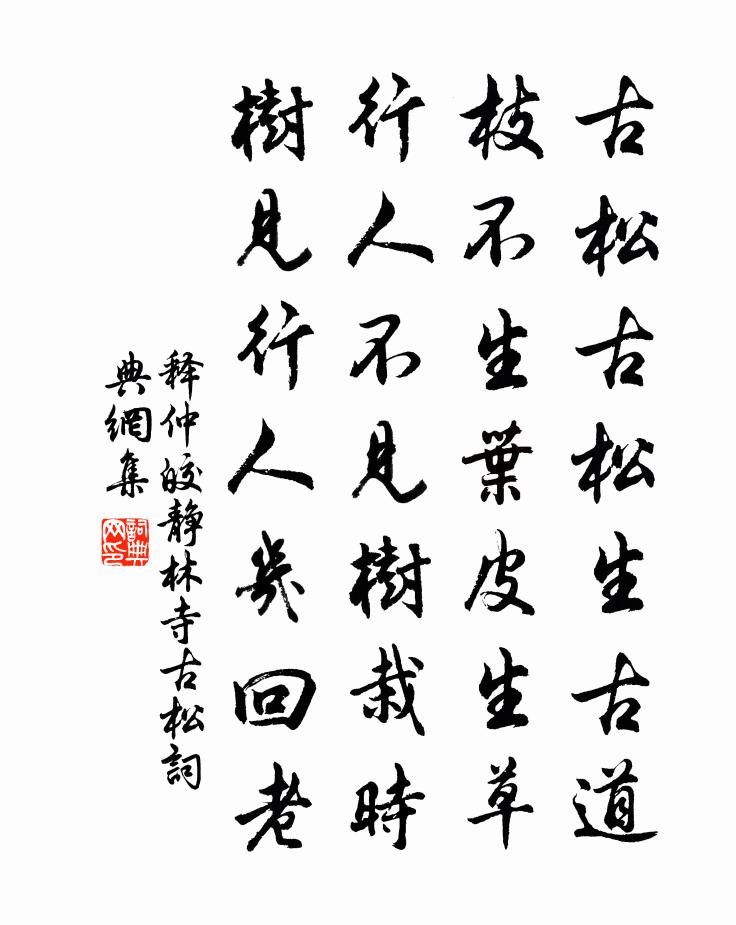 古松古松生古道
枝不生葉皮生草
行人不見樹栽時
樹見行人幾回老
释仲皎静林寺古松詞
典網集
詞典网印